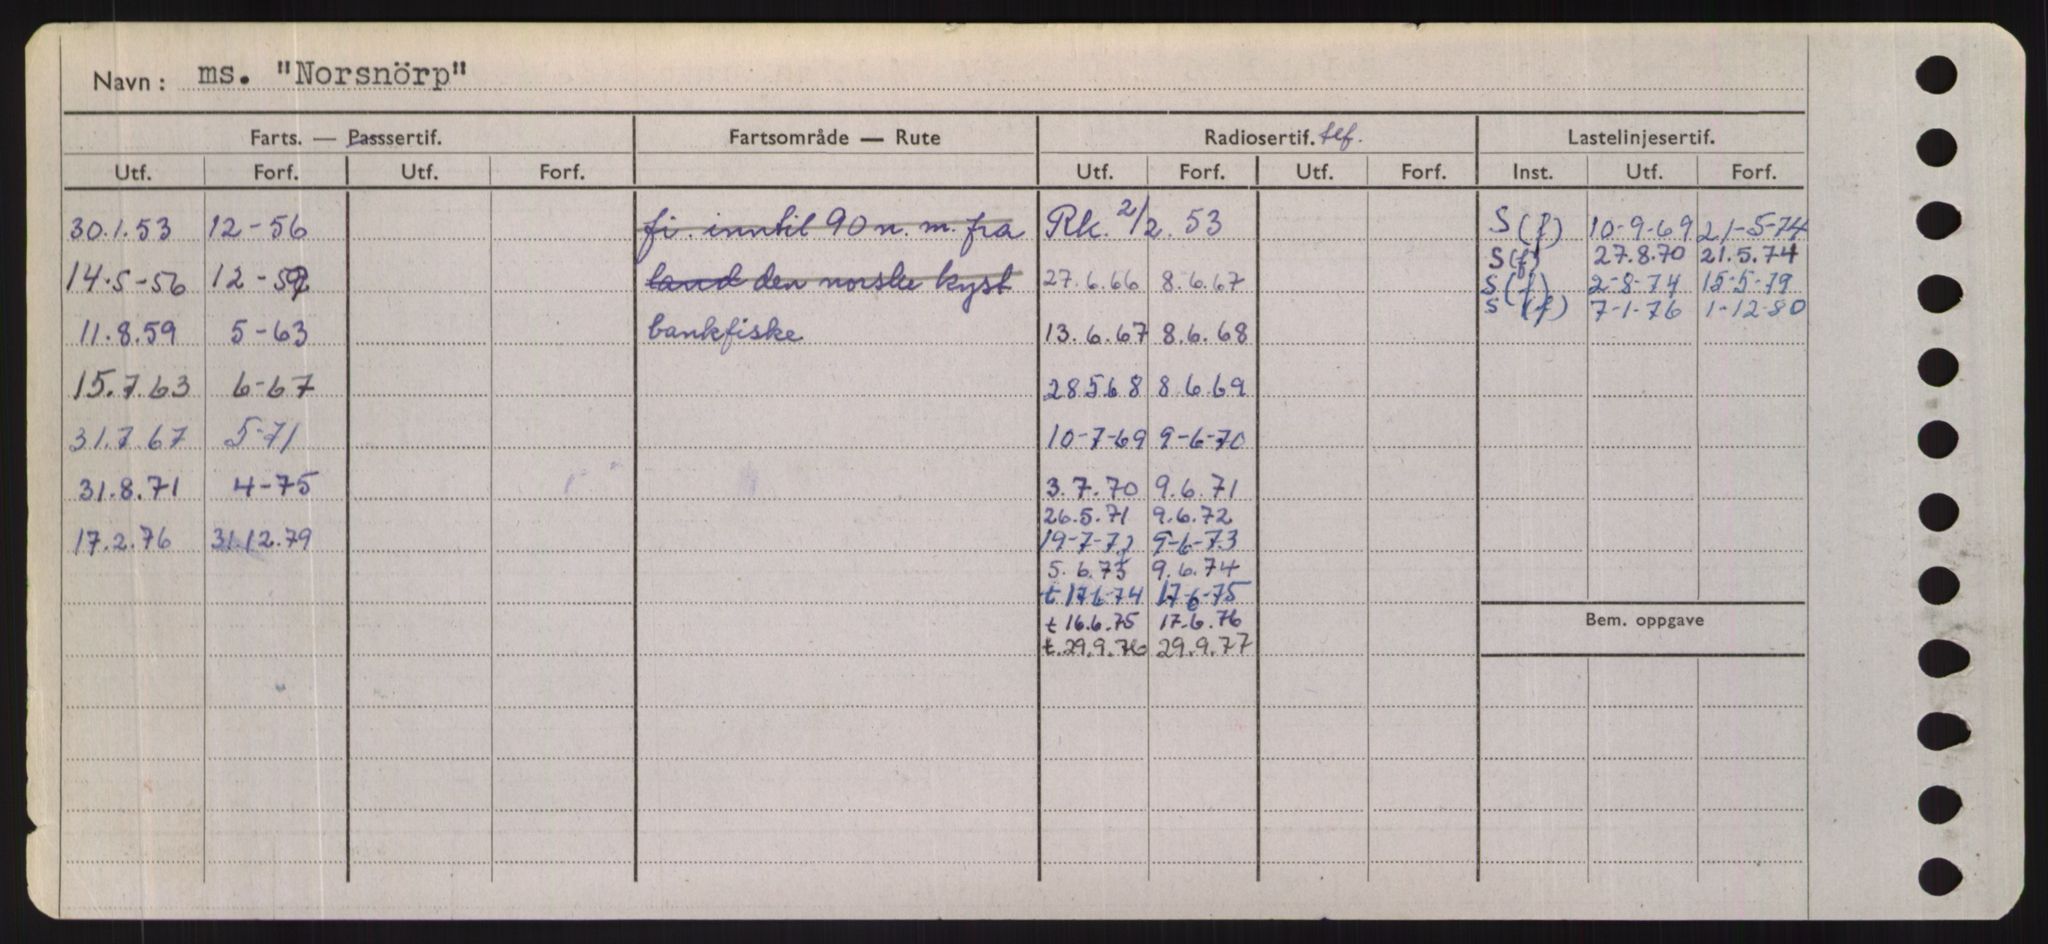 Navn: ms. "Norsnörp"
Farts. — Passsertif. Fartsområde — Rute Radiosertif. tlf. Lastelinjesertif.
Utf. Forf. Utf. Forf. Utf. Forf. Utf. Forf. Inst. Utf. Forf.
30.1.53 12-56 fi. inntil 90 n. m. fra Rk. 2/2. 53 S(f) 10-9-69 21-5-74
S(f) 27.8.70 21.5.74
14.5-56 12-59 land den norske kyst 27.6.66 8.6.67 S(f) 2-8-74 15-5-79
S(f) 7-1-76 1-12-80
11.8.59 5-63 bankfiske 13.6.67 8.6.68
15.7.63 6-67 28568 8.6.69
31.7.67 5-71 10-7-69 9-6-70
31.8.71 4-75 3.7.70 9.6.71
26.5.71 9.6.72
17.2.76 31.12.79 19-7-72 9-6-73
5.6.73 9.6.74
t 17-6-74 17-6-75
t 16.6.75 17.6.76
Bem. oppgave
t. 29.9.76 29.9.77